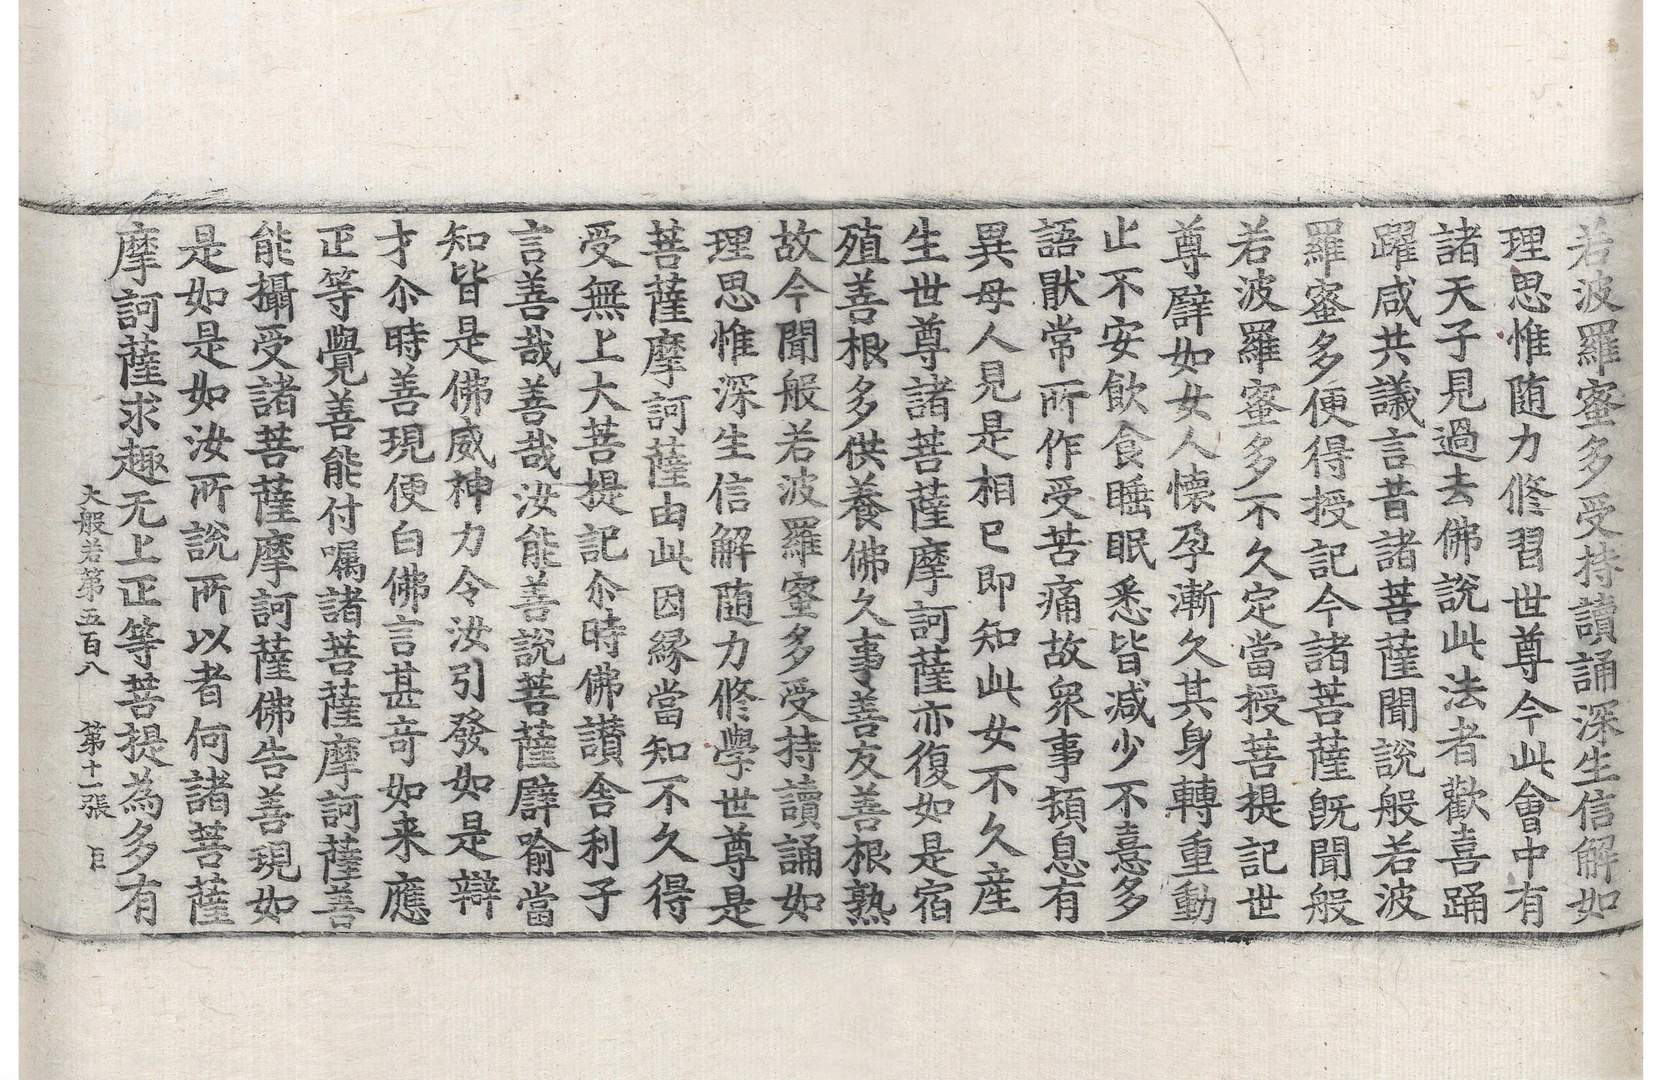 若波羅蜜多受持讀誦深生信解如
理思惟随力修習世尊今此會中有
諸天子見過去佛說此法者歡喜踊
躍咸共議言昔諸菩薩聞說般若波
羅蜜多便得授記今諸菩薩旣聞般
若波羅蜜多不久定當授菩提記世
尊譬如女人懷孕漸久其身轉重動
止不安飲食睡眠悉皆減少不憙多
語猒常所作受苦痛故衆事頓息有
異母人見是相已即知此女不久產
生世尊諸菩薩摩訶薩亦復如是宿
殖善根多供養佛久事善友善根熟
故今聞般若波羅蜜多受持讀誦如
理思惟深生信解随力修學世尊是
菩薩摩訶薩由此因緣當知不久得
受無上大菩提記尒時佛讚舍利子
言善哉善哉汝能善說菩薩譬喻當
知皆是佛威神力令汝引發如是辯
才尒時善現便白佛言甚奇如来應
正等覺善能付嘱諸菩薩摩訶薩善
能攝受諸菩薩摩訶薩佛告善現如
是如是如汝所說所以者何諸菩薩
摩訶薩求趣无上正等菩提為多有
大般若第五百八 第十一張 巨